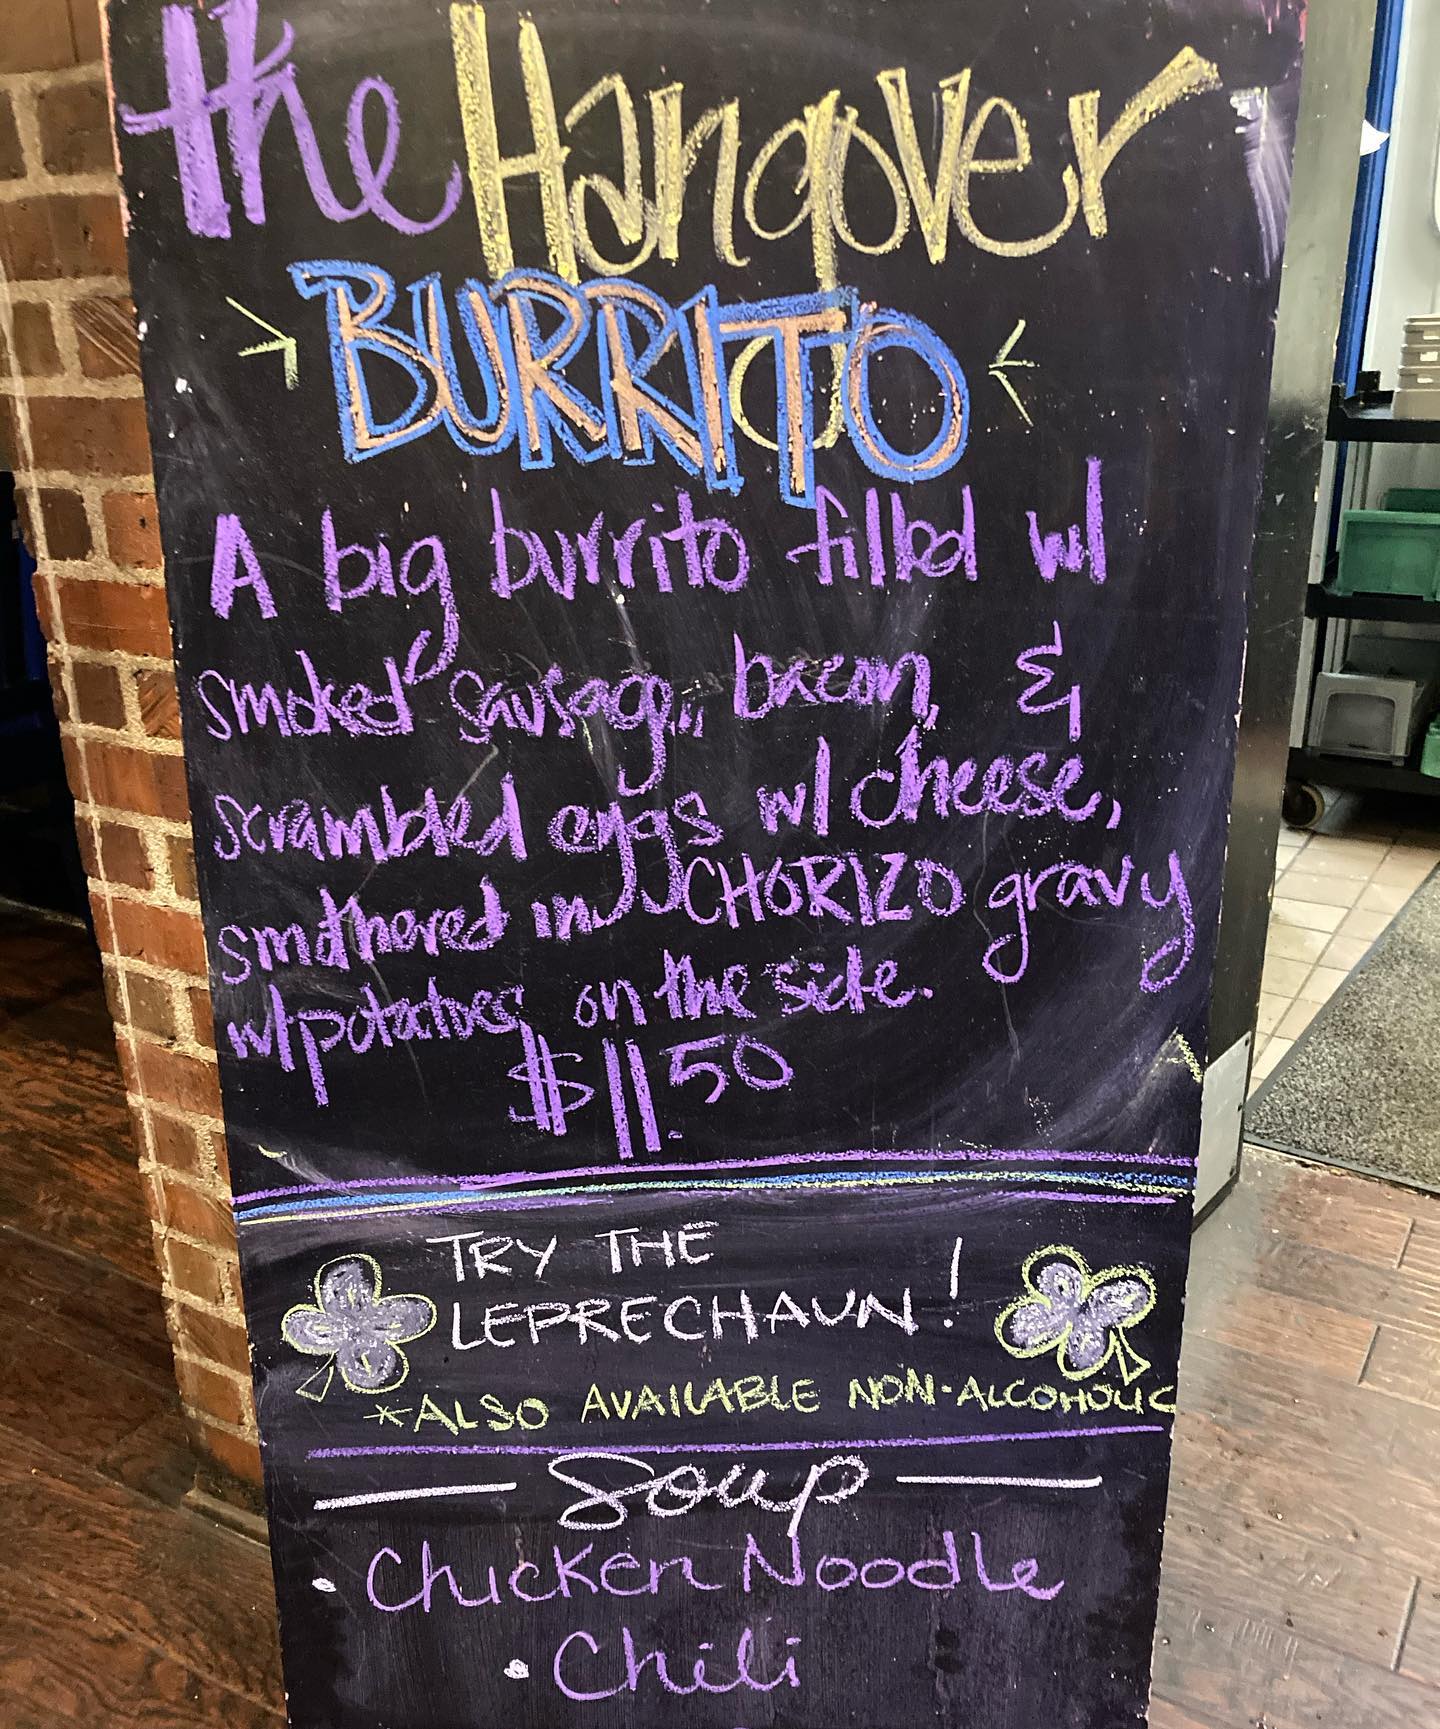 the Hangover
BURRITO
A big burrito filled w/
smoked sausage, bacon, &
scrambled eggs w/ cheese,
smothered in CHORIZO gravy
w/potatoes on the side.
$11.50
TRY THE
LEPRECHAUN!
*ALSO AVAILABLE NON-ALCOHOLIC
Soup
• Chicken Noodle
• Chili